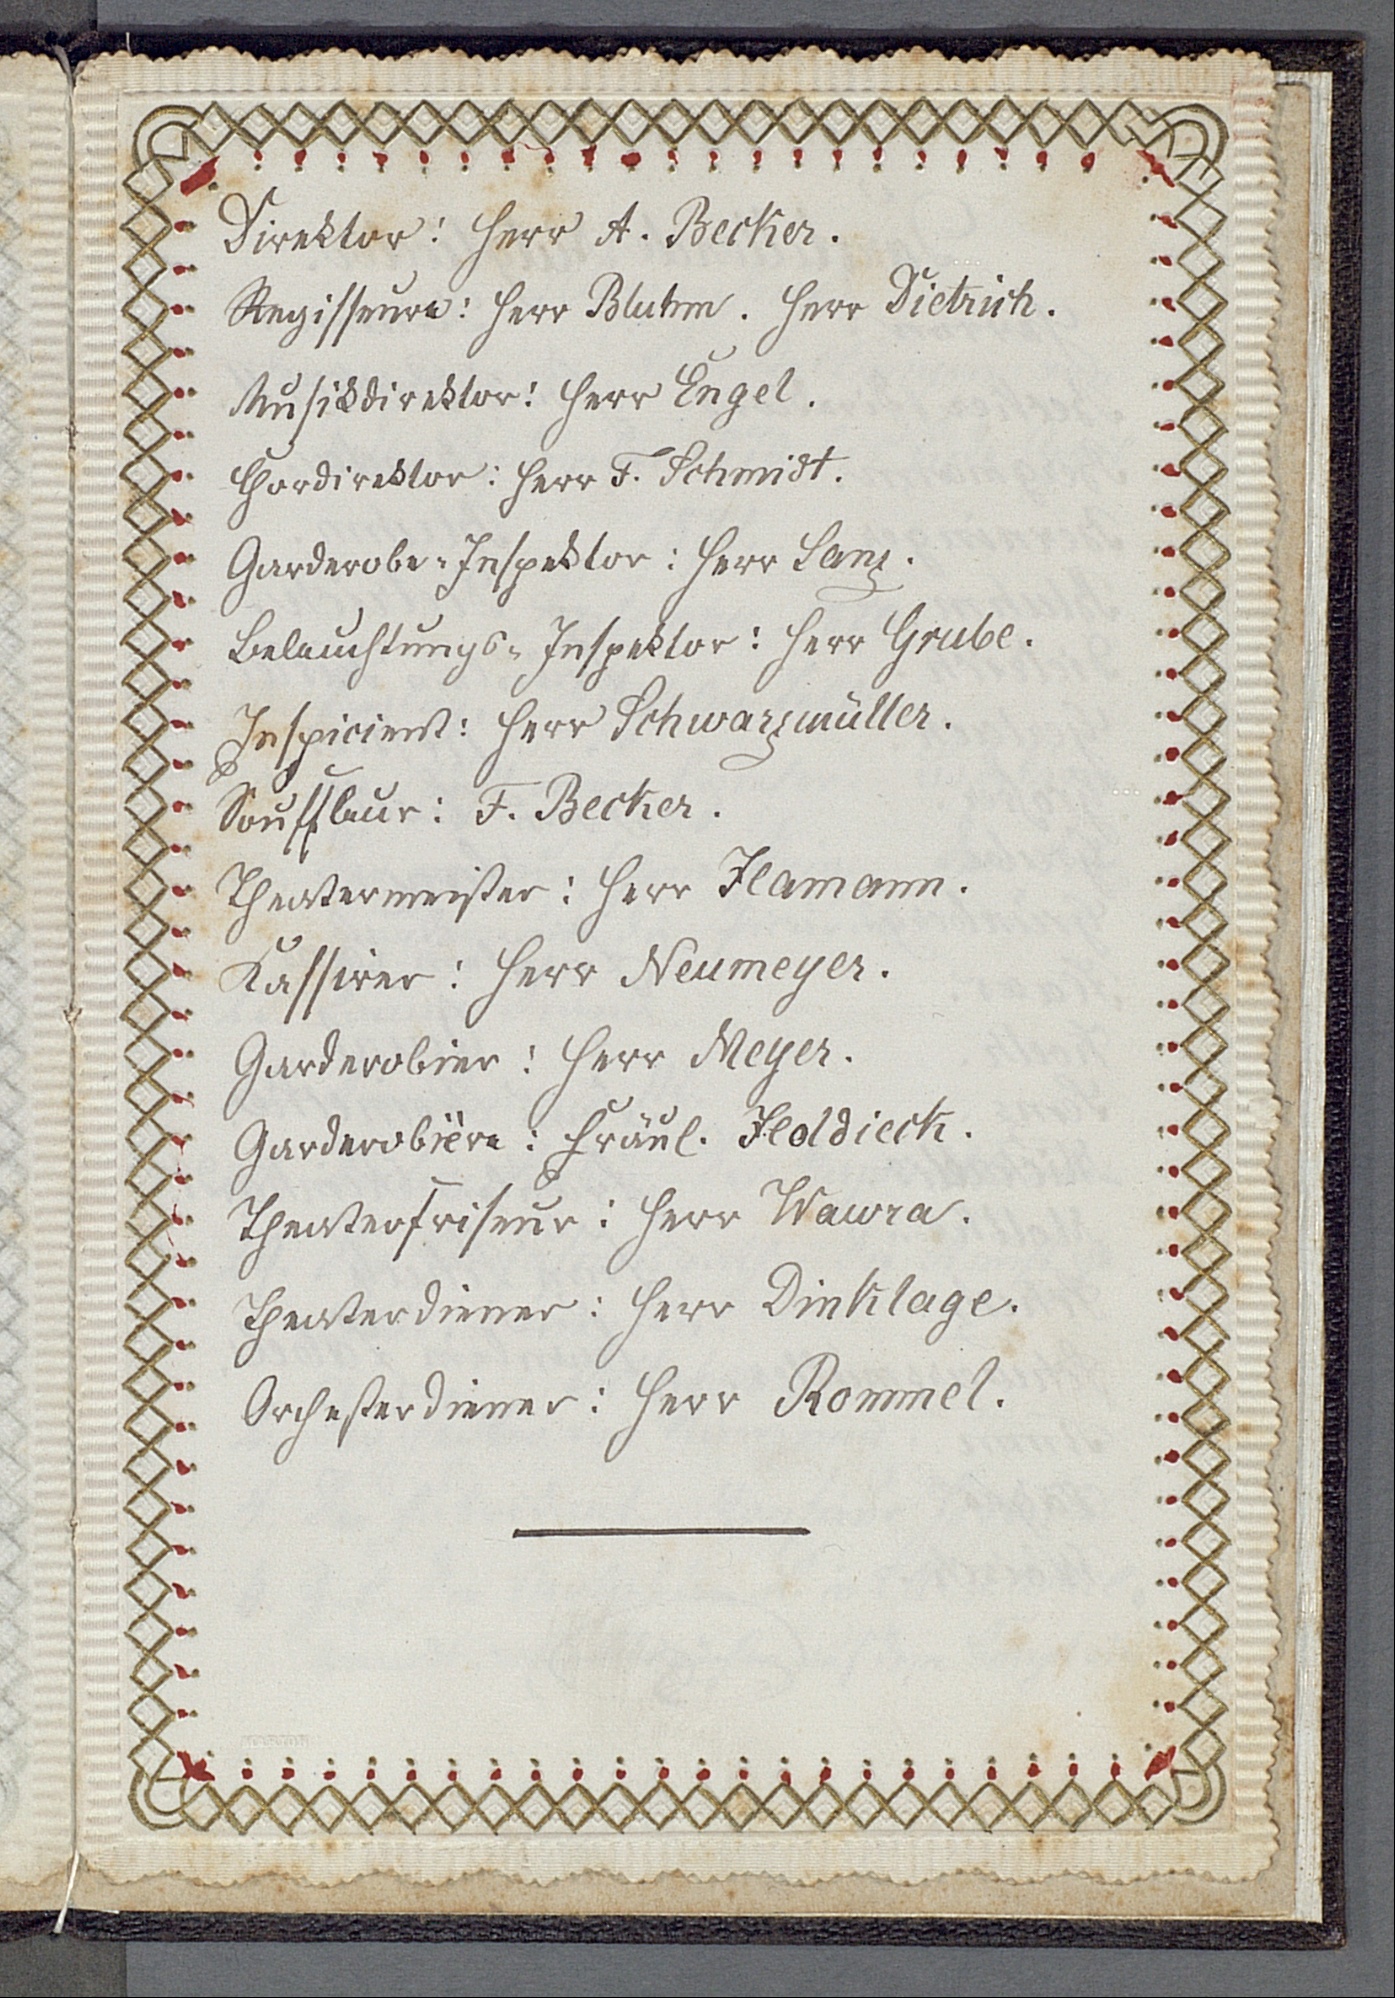 Direktor: Herr A. Becker.
Regisseure: Herr Bluhm. Herr Dietrich.
Musikdirektor: Herr Engel.
Chordirektor: Herr F. Schmidt.
Garderobe-Inspektor: Herr Lanz.
Beleuchtungs-Inspektor: Herr Grube.
Inspicient: Herr Schwarzmüller.
Souffleur: F. Becker.
Theatermeister: Herr Hamann.
Kassirer: Herr Neumeyer.
Garderobier: Herr Meyer.
Garderobière: Fräul. Holdieck.
Theaterfriseur: Herr Wawra.
Theaterdiener: Herr Dinklage.
Orchesterdiener: Herr Rommel.